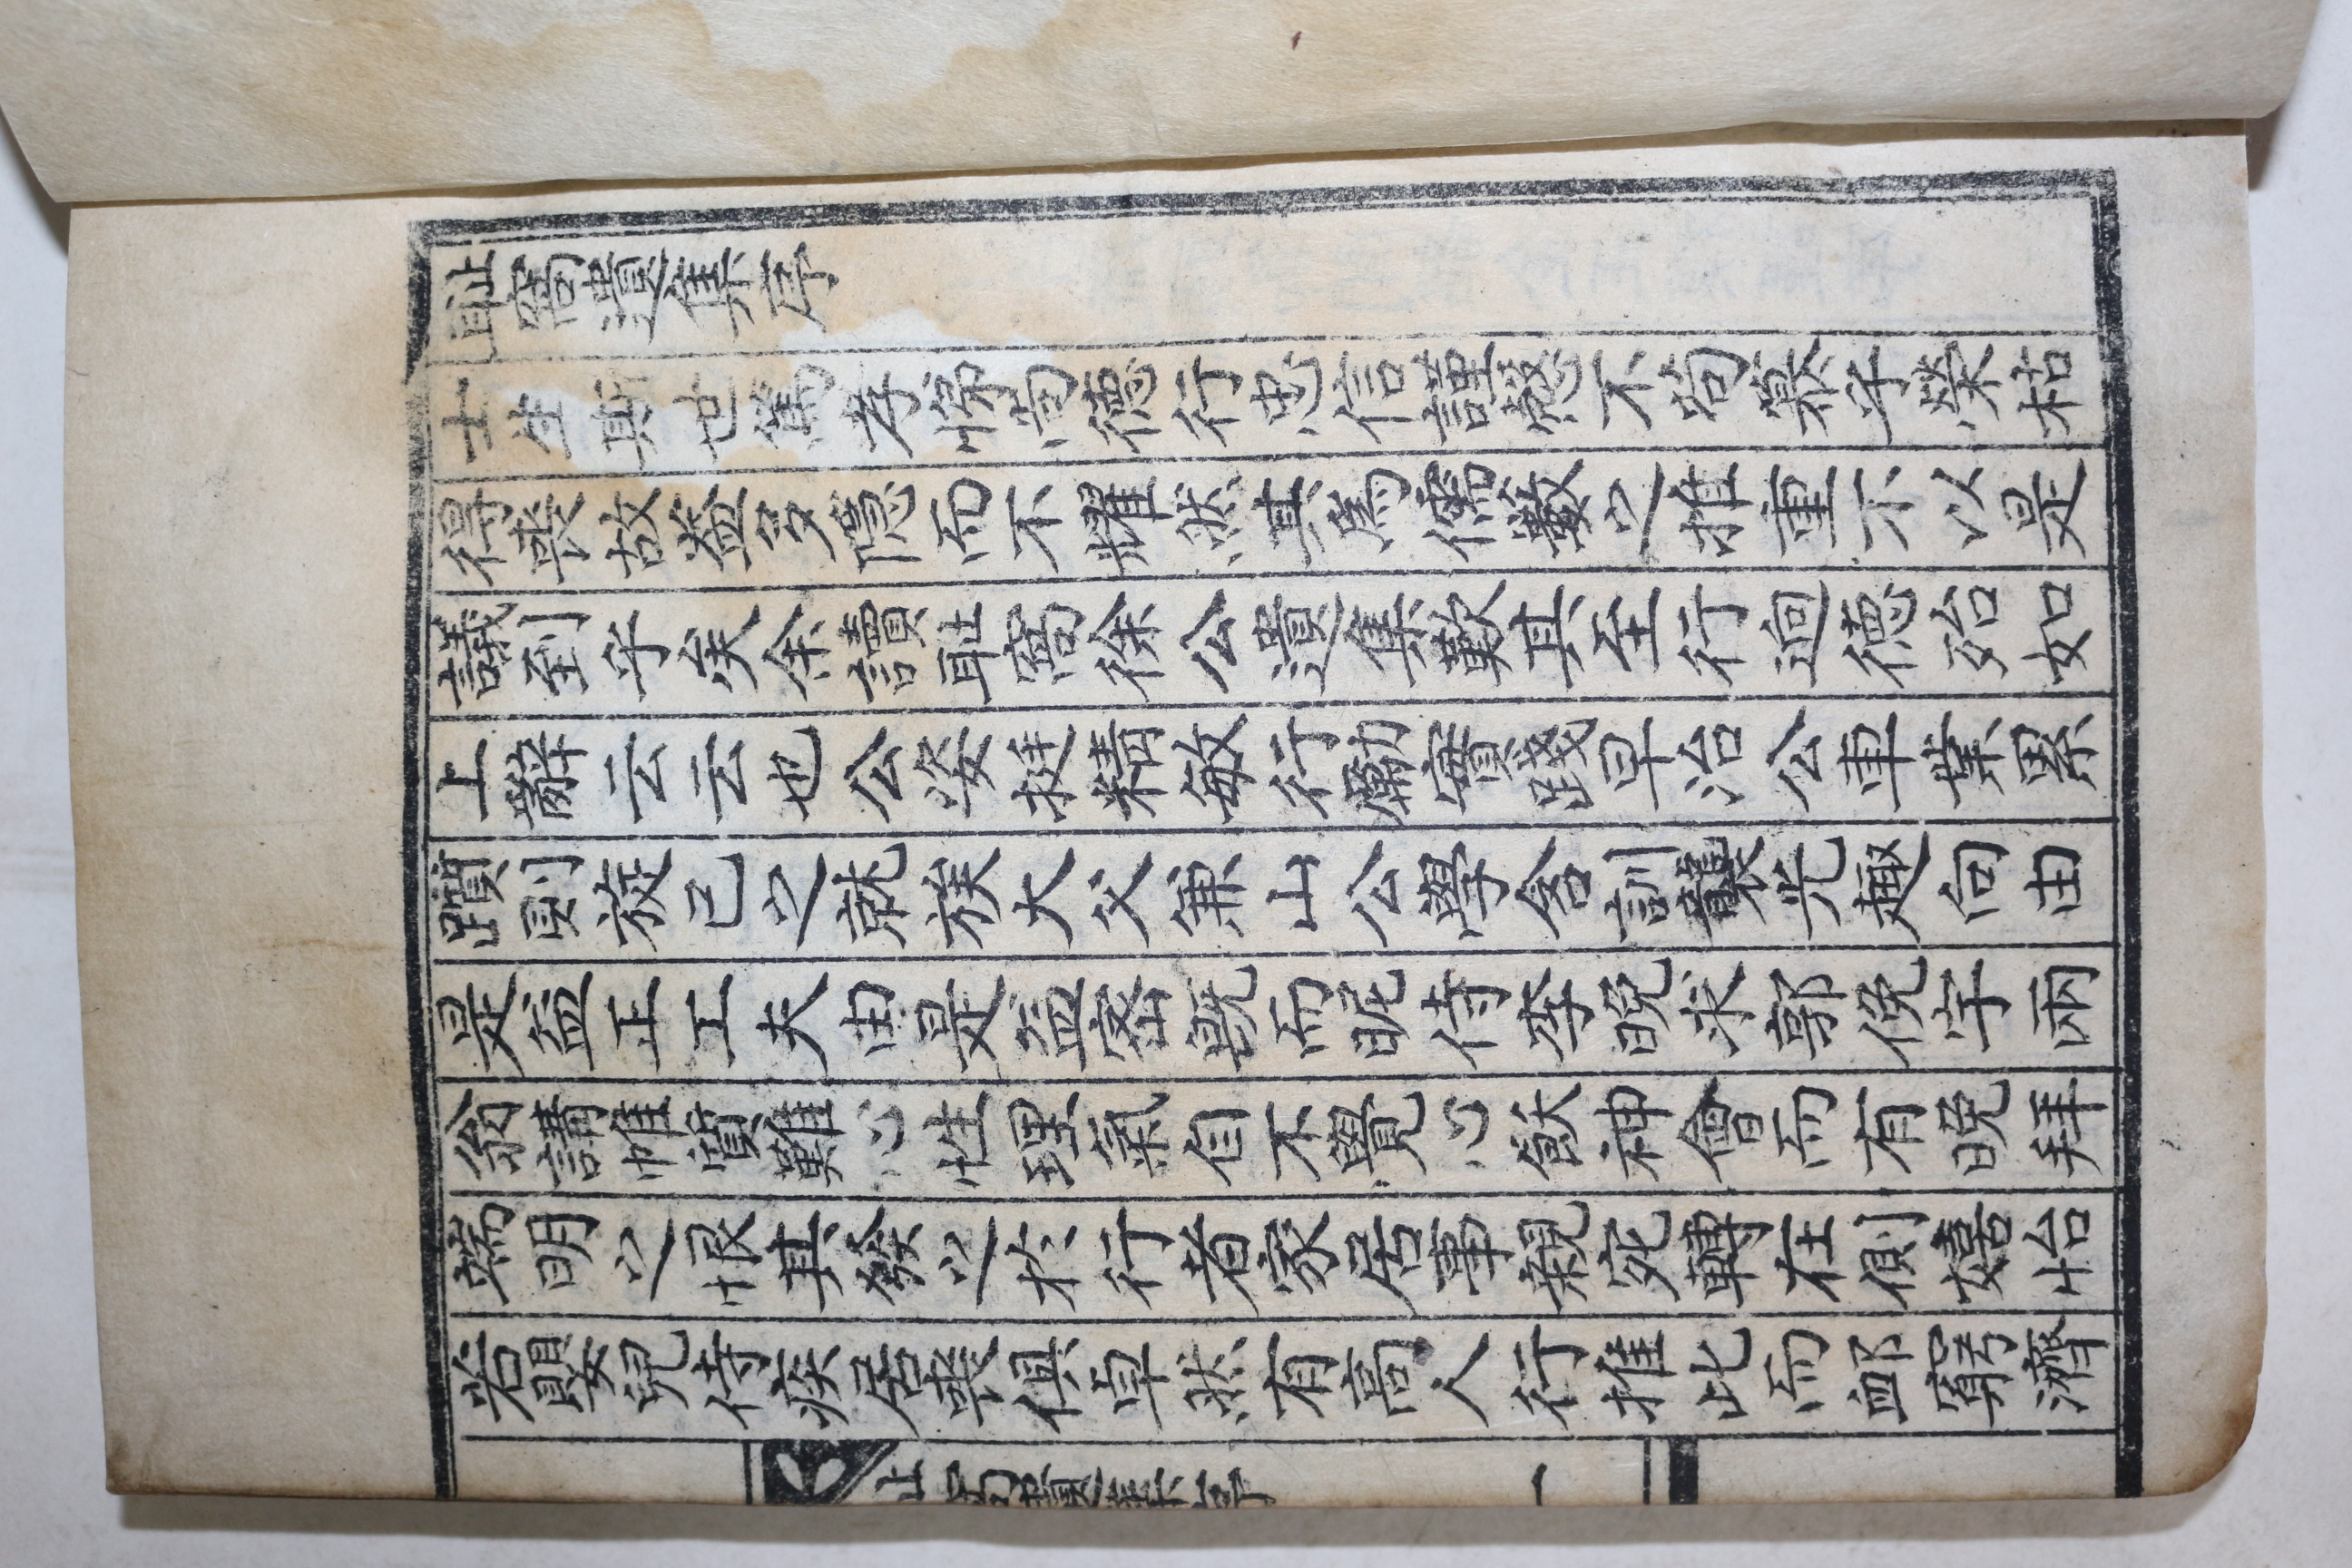 耻窩遺集序
士生斯世篤孝悌尙德行忠信謹慤不苟慕乎榮枯
得喪故益多隱而不耀然其爲儒藪之推重不以是
議到乎矣余讀耻窩徐公遺集歎其至行逈德殆如
上辭云云也公姿挺精敏行勵實踐早治公車業累
躓則旋已之就族大父兼山公學含訓襲光趣向由
是益正工夫由是益密旣而昵侍李晩求郭俛宇兩
翁講帷質難心性理氣自不覺心飫神會而有晩拜
端明之恨其發之於行者家居事親宛轉在側嬉怡
若嬰兒侍疾居喪俱卓然有高人行推此而䘏窮濟
耻窩遺集序
一